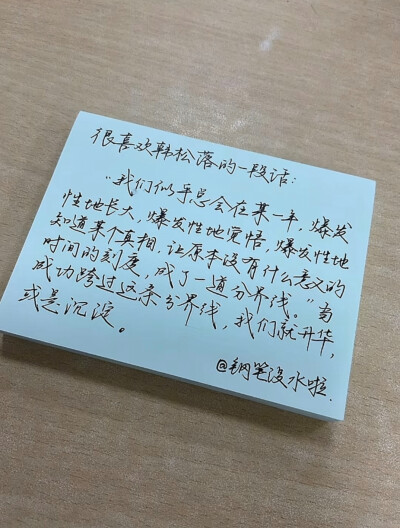 很喜欢韩松落的一段话：
“我们似乎总会在某一年，爆发
性地长大，爆发性地觉悟，爆发性地
知道某个真相，让原本没有什么意义的
时间的刻度，成了一道分界线。”当
成功跨过这条分界线，我们就升华，
或是沉淀。
@钢笔没水啦.